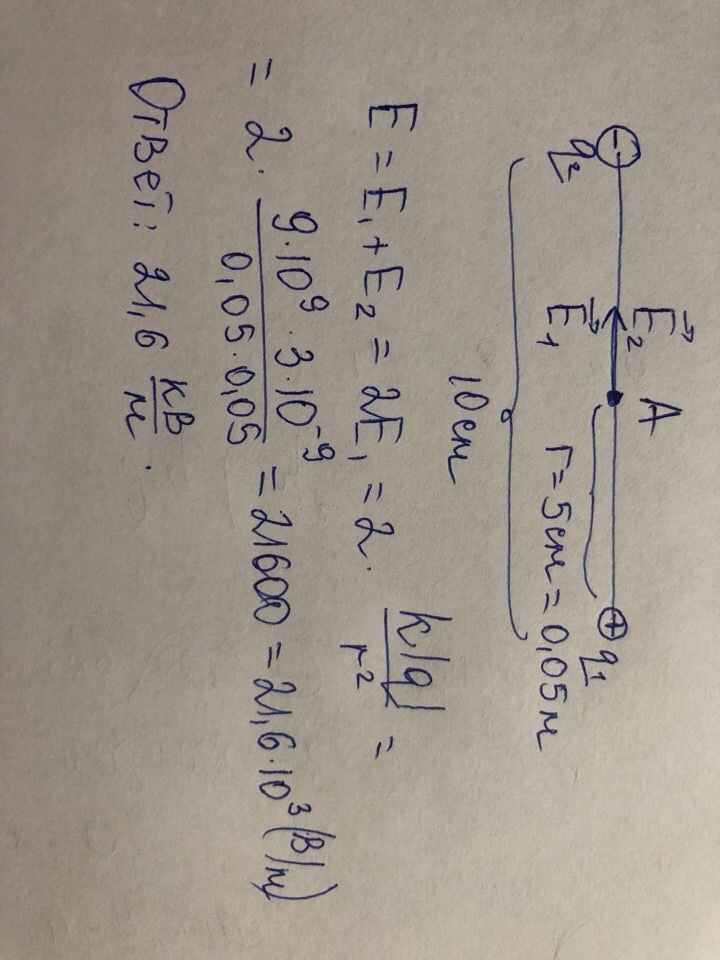 E⃗₂ A
⊖ ⊕
q₂ E⃗₁ r=5см=0,05м q₁
10 см
E = E₁ + E₂ = 2E₁ = 2 · k|q|/r² =
= 2 · 9·10⁹·3·10⁻⁹/0,05·0,05 = 21600 = 21,6·10³ (В/м)
Ответ: 21,6 кВ/м.